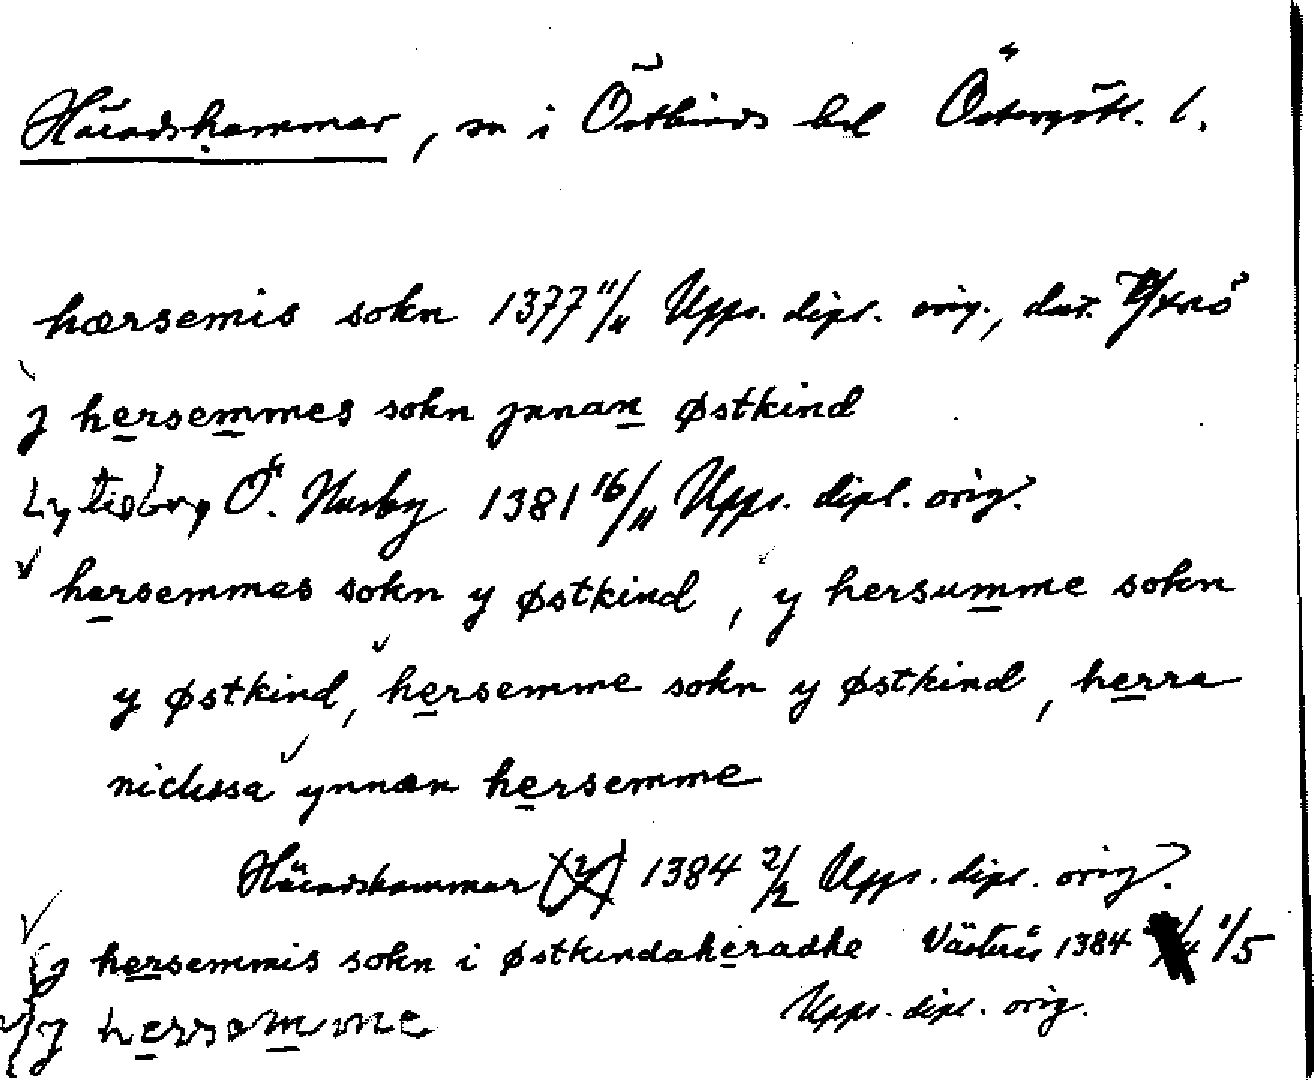 Häradshammar, sn i Östkinds hd Östergötl. l.
hærsemis sokn 1377 11/11 Upps. dipl. orig., dat.
j hersemmes sokn jnnan østkind
Ö. Husby 1381 16/11 Upps. dipl. orig.
hersemmes sokn y østkind, y hersumme sokn
y østkind, hersemme sokn y østkind, herra
niclissa ynnan hersemme
Häradshammar 1384 2/2 Upps. dipl. orig.
j hersemmis sokn i østkindaheradhe Västerås 1384 1/5
Upps. dipl. orig.
j hersamme